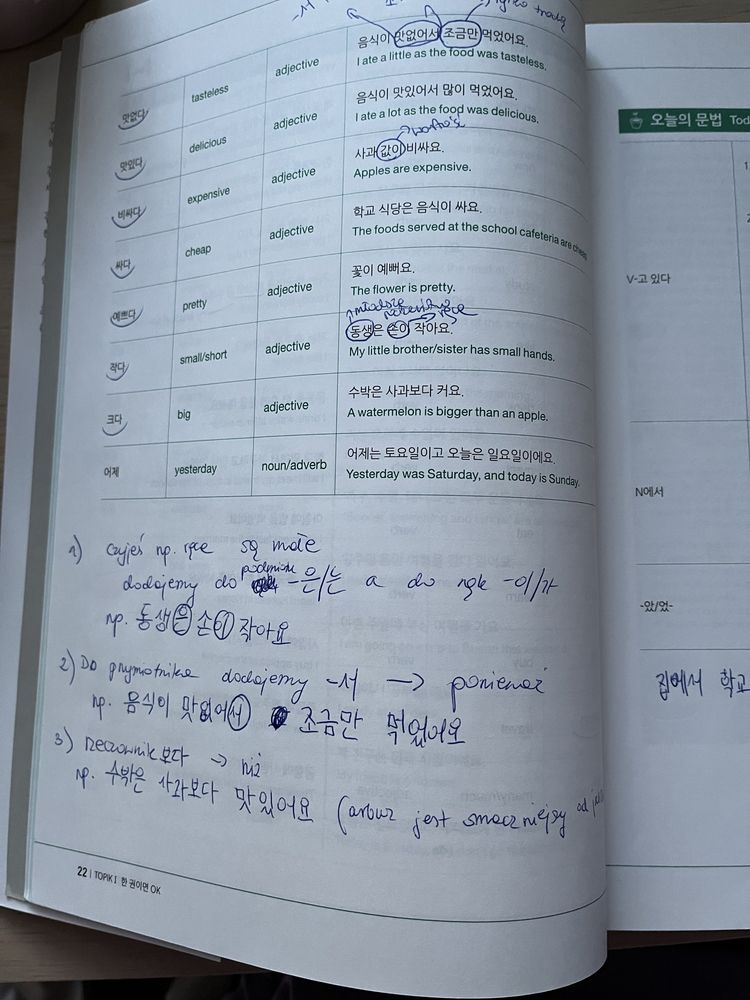 -서
음식이 맛없어서 조금만 먹었어요.
맛없다 tasteless adjective I ate a little as the food was tasteless.
음식이 맛있어서 많이 먹었어요.
맛있다 delicious adjective I ate a lot as the food was delicious.
wartość
사과 값이 비싸요.
비싸다 expensive adjective Apples are expensive.
학교 식당은 음식이 싸요.
싸다 cheap adjective The foods served at the school cafeteria are cheap
꽃이 예뻐요.
예쁘다 pretty adjective The flower is pretty.
młodsze rodzeństwo ręce
동생은 손이 작아요.
작다 small/short adjective My little brother/sister has small hands.
수박은 사과보다 커요.
크다 big adjective A watermelon is bigger than an apple.
어제는 토요일이고 오늘은 일요일이에요.
어제 yesterday noun/adverb Yesterday was Saturday, and today is Sunday.
1) Czyjeś np. ręce są małe
dodajemy do podmiotu -은/는 a do ręk -이/가
np. 동생은 손이 작아요
2) Do przymiotnika dodajemy -서 → ponieważ
np. 음식이 맛없어서 조금만 먹었어요
3) rzeczownik보다 → niż
np. 수박은 사과보다 맛있어요 (arbuz jest smaczniejszy od
22 | TOPIK I 한 권이면 OK
오늘의 문법 Tod
1
2
V-고 있다
N에서
-았/었-
집에서 학교